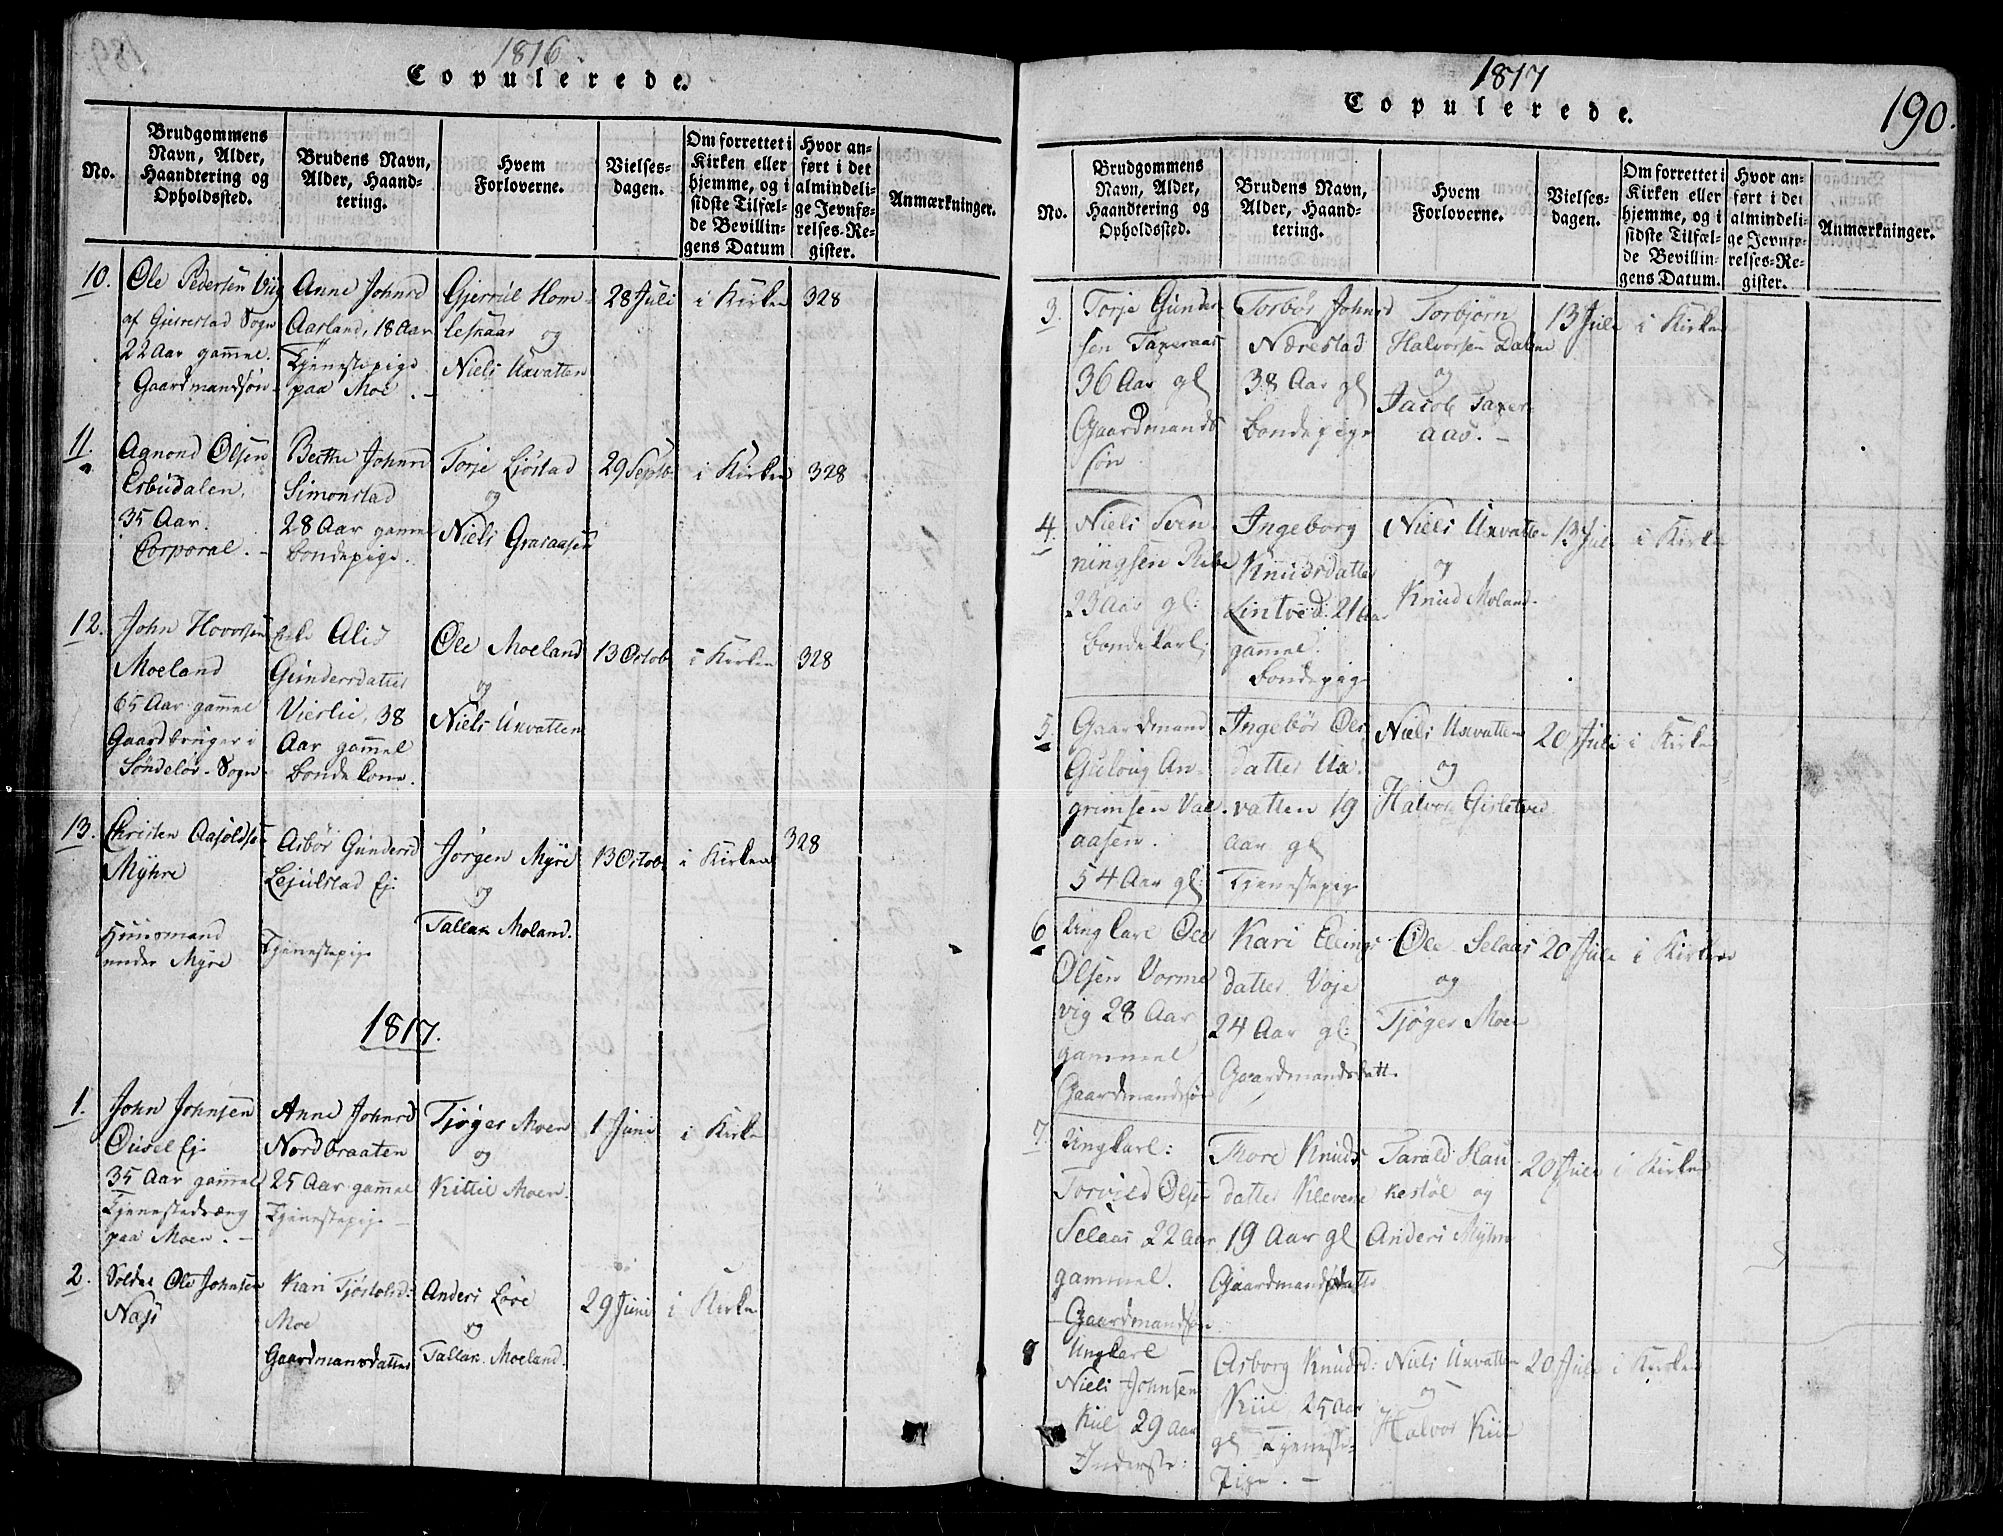 1816.
Copulerede.
No.
Brudgommens
Navn, Alder,
Haandtering og
Opholdssted.
Brudens Navn,
Alder, Haand-
tering.
Hvem
Forloverne.
Vielses-
dagen.
Om forrettet i
Kirken eller
hjemme, og i
sidste Tilfæl-
de Bevillin-
gens Datum
Hvor an-
ført i det
almindeli-
ge Jevnfø-
relses-Re-
gister.
Anmærkninger.
10.
Ole Pedersen
af Gjerrestad Sogn
22 Aar gammel.
Gaardmandsøn
Anne Johnsd
Aasland, 18 Aar
Tjenestepige
paa Moe.
Gjerrul Hom-
lesaas og
Niels Uxvatten
28 Juli
i Kirken
328
11.
Agnond Olsen
Esbudalen,
35 Aar.
Corporal.
Berthe Johnsd
Simonstad
28 Aar gammel
bondepige.
Torje Ljøstad
og
Niels Grasaasen
29 Septb
i Kirken
328
12.
John Hovorsen
Moeland
65 Aar gammel
Gaardbruger i
Søndeløv-Sogn
Enke Alis
Gundersdatter
Vierlie, 38
Aar gammel
bondekone.
Ole Moeland
og
Niels Uxvatten
13 Octob
i Kirken
328
13.
Christen Aasoldse
Myhre
Huusmand
under Myre
Asbør Gundersd
Lejulstad Ej.
Tjenestepige
Jørgen Myre
og
Tallak Moland.
13 Octob
i Kirken
328
1817.
1.
John Johnsen
Ousel Ej.
35 Aar gammel
Tjenestedræng
paa Moen.
Anne Johnsd
Nordbraaten
25 Aar gammel
Tjenestepige
Tjøger Moen
og
Kittil Moen
1 Juni
i Kirke
2.
Soldat Ole Johnsen
Næs
Kari Tjøstolsd:
Moe
Gaardmansdatter
Anders Løve
og
Tallak Moeland.
29 Juni
i Kirke
1817
Copulerede.
190.
No.
Brudgommens
Navn, Alder,
Haandtering og
Opholdssted.
Brudens Navn,
Alder, Haand-
tering.
Hvem
Forloverne.
Vielses-
dagen.
Om forrettet i
Kirken eller
hjemme, og i
sidste Tilfæl-
de Bevillin-
gens Datum.
Hvor an-
ført i det
almindeli-
ge Jevnfø-
relses-Re-
gister.
Anmærkninger.
3.
Torje Gunder
sen Taxeraas
36 Aar gl
Gaardmands
søn
Torbør Johnsd
Nærestad
38 Aar gl
Bondepige
Torbjørn
Halvorsen Dalene
og
Jacob Taxer
aas.
13 Juli
i Kirken
4.
Niels Sven
ningsen Ribe
23 Aar gl:
Bondekarl;
Ingeborg
Knudsdatter
Lintved: 21 Aar
gammel.
bondepige
Niels Uxvatten
og
Knud Moland.
13 Juli
i Kirke
5.
Gaardmand
Guloug An-
grimsen Val
aasen.
54 Aar gl;
Ingebør Ols
datter Ux-
vatten 19
aar gl
Tjenestepige
Niels Uxvatten
og
Halvor Gisletved
20 Juli
i Kirke
6
Ungkarl Ole
Olsen Vorme
vig 28 Aar
gammel
Gaardmandsøn
Kari Ellings
datter Voje
24 Aar gl:
Gaardmandsdatt.
Ole Selaas
og
Tjøger Moen
20 Juli
i Kirken
7.
Ungkarl:
Torvild Olsen
Selaas 22 aar
gammel.
Gaardmandsøn
Thore Knuds
datter Klevene
19 Aar gl
Gaardmandsdatter
Tarald Hau
kestøl og
Anders Myhre
20 Juli
i Kirken
8
Ungkarl
Niels Johnsen
Kiil 29 aar
Inderste:
Asborg Knudsd:
Kiil 25 Aar
gl Tjeneste-
Pige.
Niels Uxvatten
og
Halvor Kiil
20 Juli
i Kirken